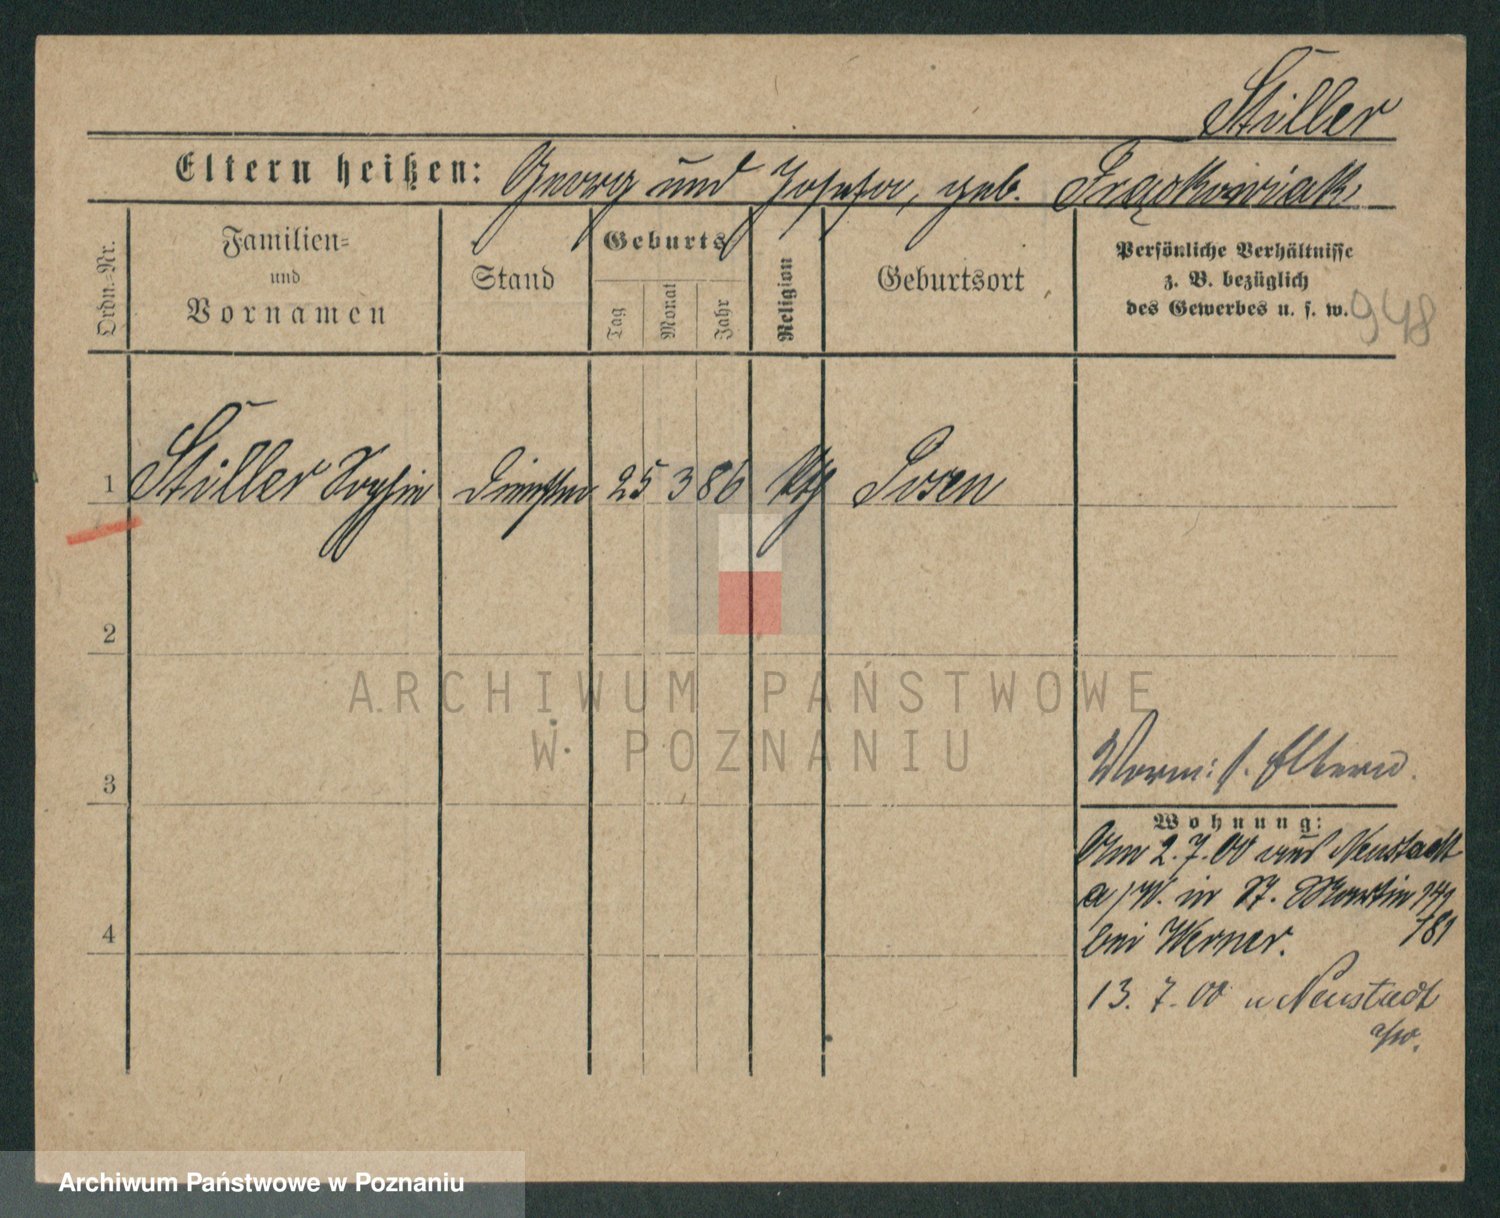 Stiller
Eltern heißen: Georg und Josefa, geb. Frąckowiak
Ordn.-Nr.
Familien-
und
Vornamen
Stand
Geburts
Tag
Monat
Jahr
Religion
Geburtsort
Persönliche Verhältnisse
z. B. bezüglich
des Gewerbes u. s. w.
948
1 Stiller Sophie 25 3 86 kth Posen
2
ARCHIWUM PAŃSTWOWE
W POZNANIU
3
Vorm: s. Eltern.
Wohnung:
Am 2.7.00 aus Neustadt
a/W. in St. Martin
bei Werner.
4
13.7.00 n Neustadt
a/W.
Archiwum Państwowe w Poznaniu